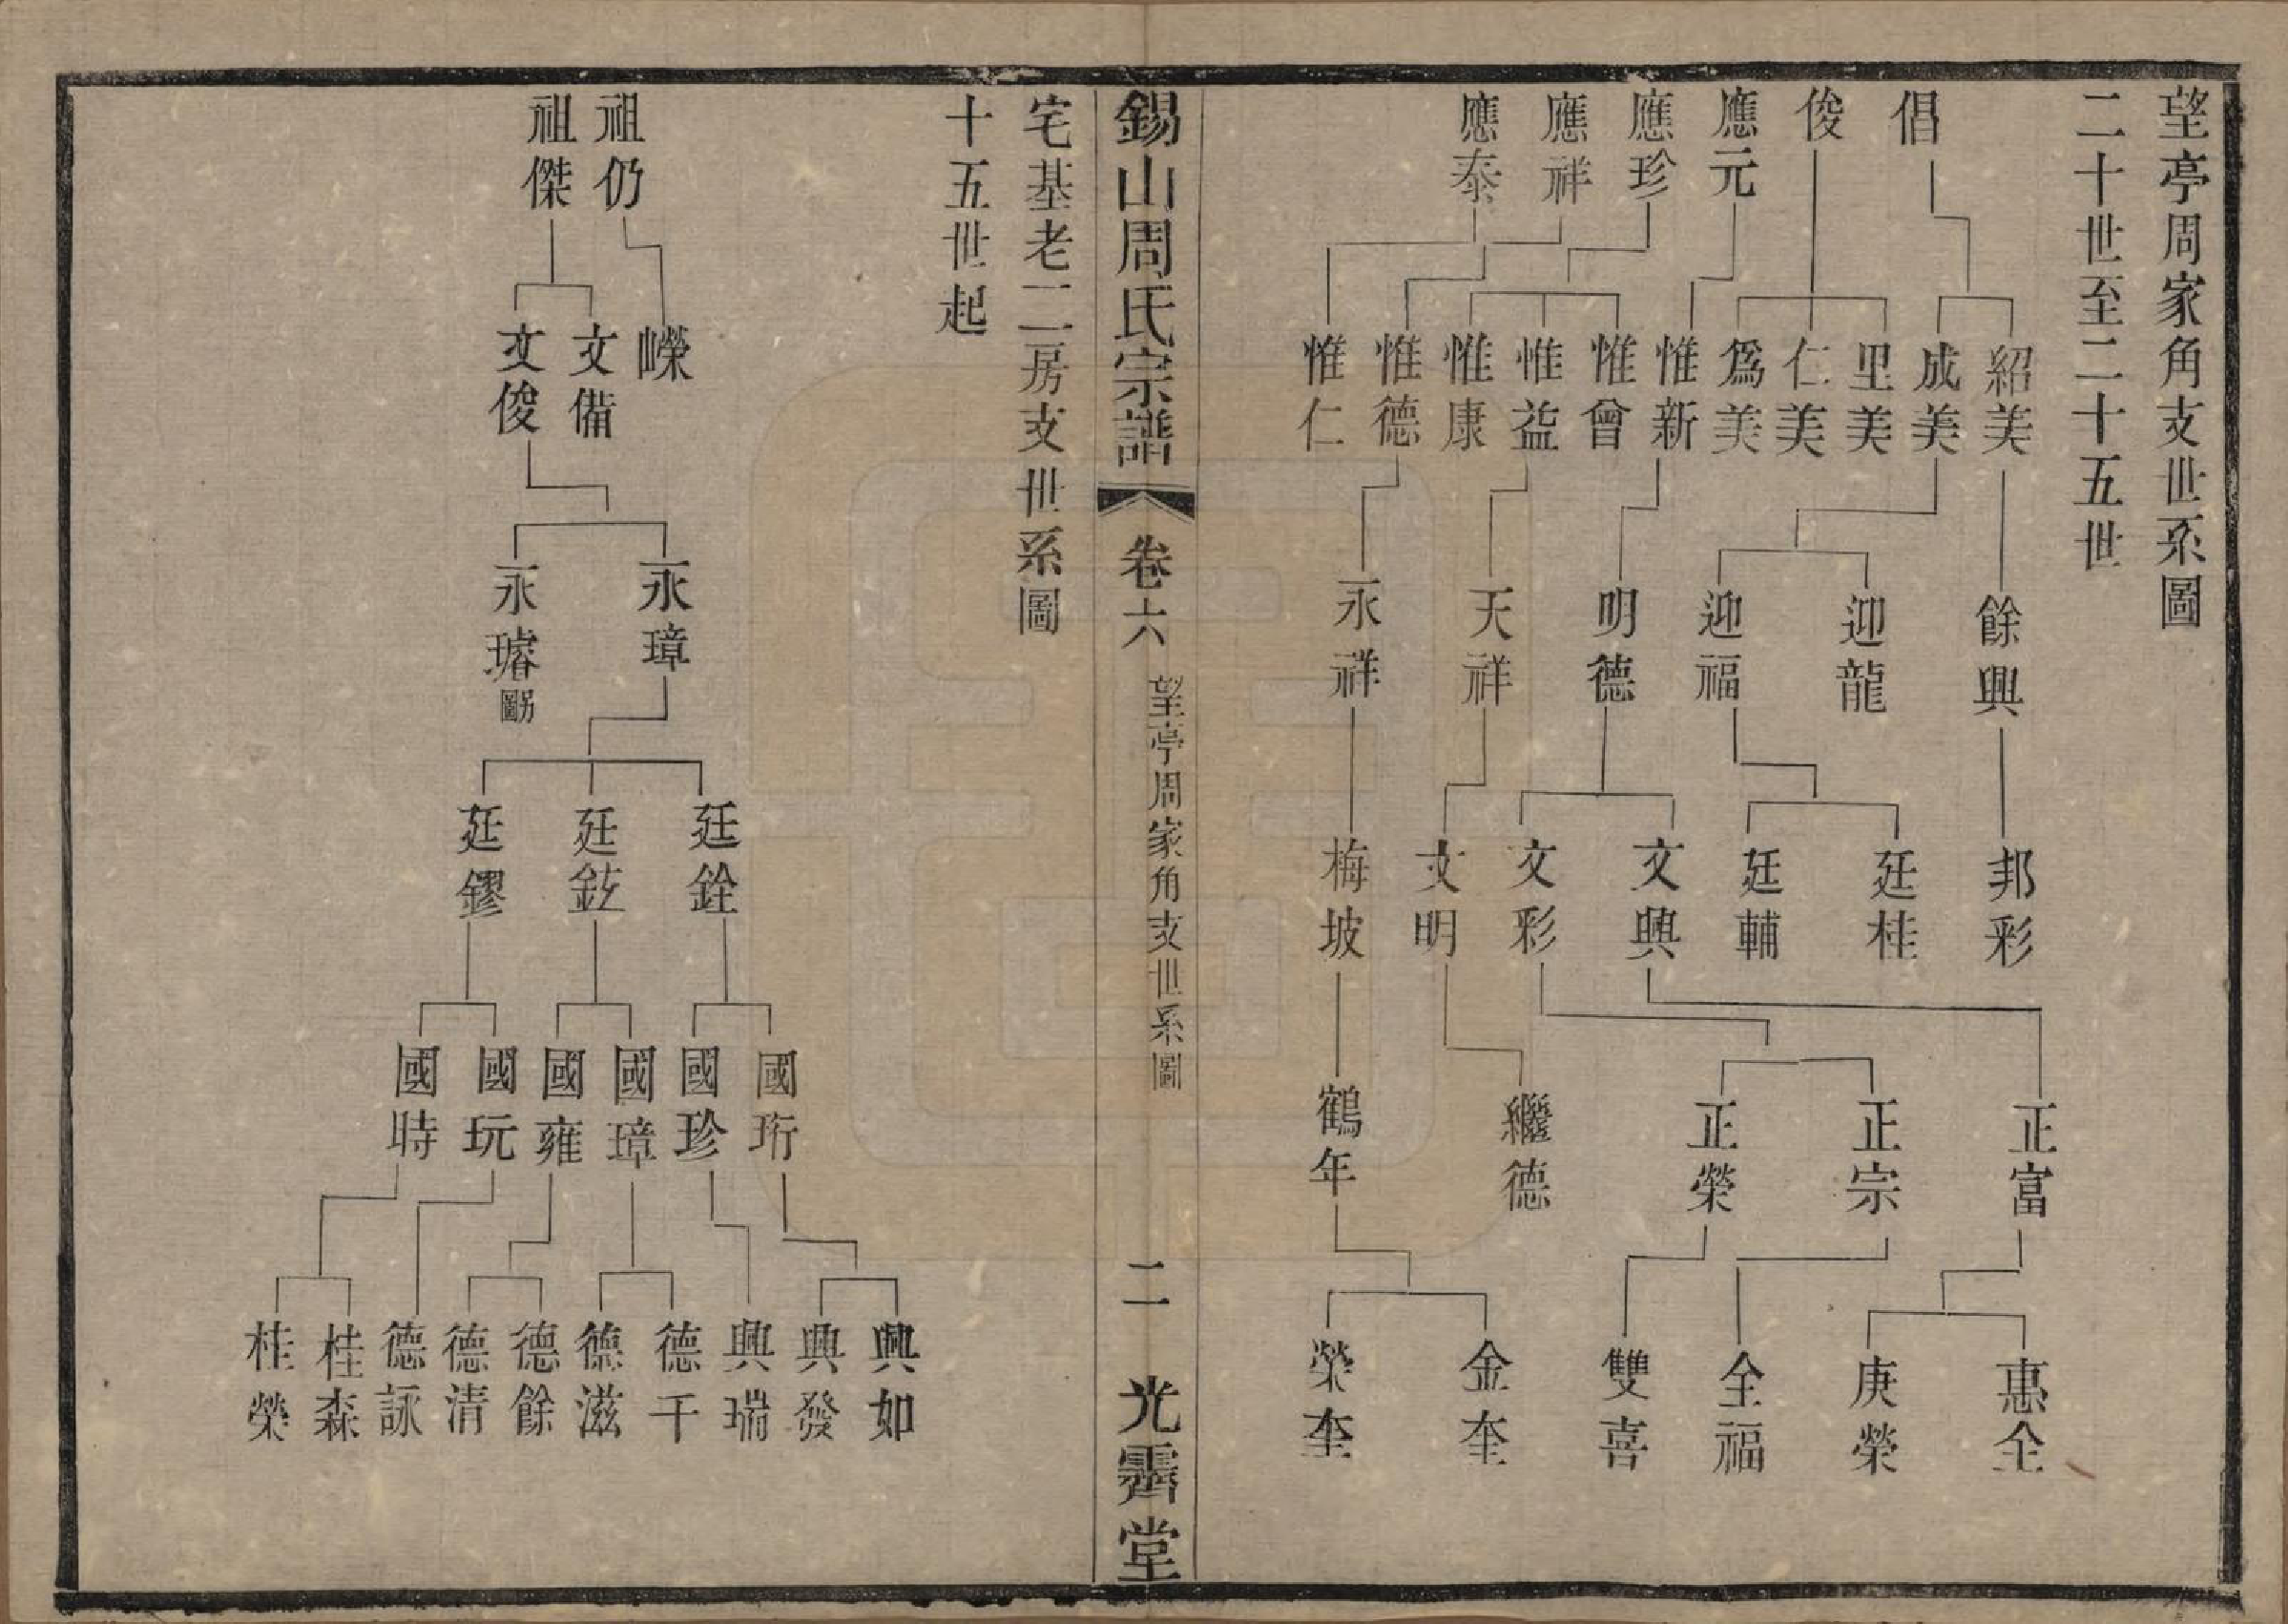 望亭周家角支世系圖
二十世至二十五世
倡
俊
應元
應珍
應祥
應泰
紹美
成美
里美
仁美
爲美
惟新
惟曾
惟益
惟康
惟德
惟仁
餘興
迎龍
迎福
明德
天祥
永祥
邦彩
廷桂
廷輔
文興
文彩
文明
梅坡
正富
正宗
正榮
繼德
鶴年
惠全
庚榮
全福
雙喜
金奎
榮奎
錫山周氏宗譜
卷六
望亭周家角支世系圖
二
光霽堂
宅基老二房支世系圖
十五世起
祖仍
祖傑
嶸
文備
文俊
永璋
永璿另圖
廷銓
廷鉉
廷鏐
國珩
國珍
國璋
國雍
國玩
國時
興如
興發
興瑞
德千
德滋
德餘
德清
德詠
桂森
桂榮